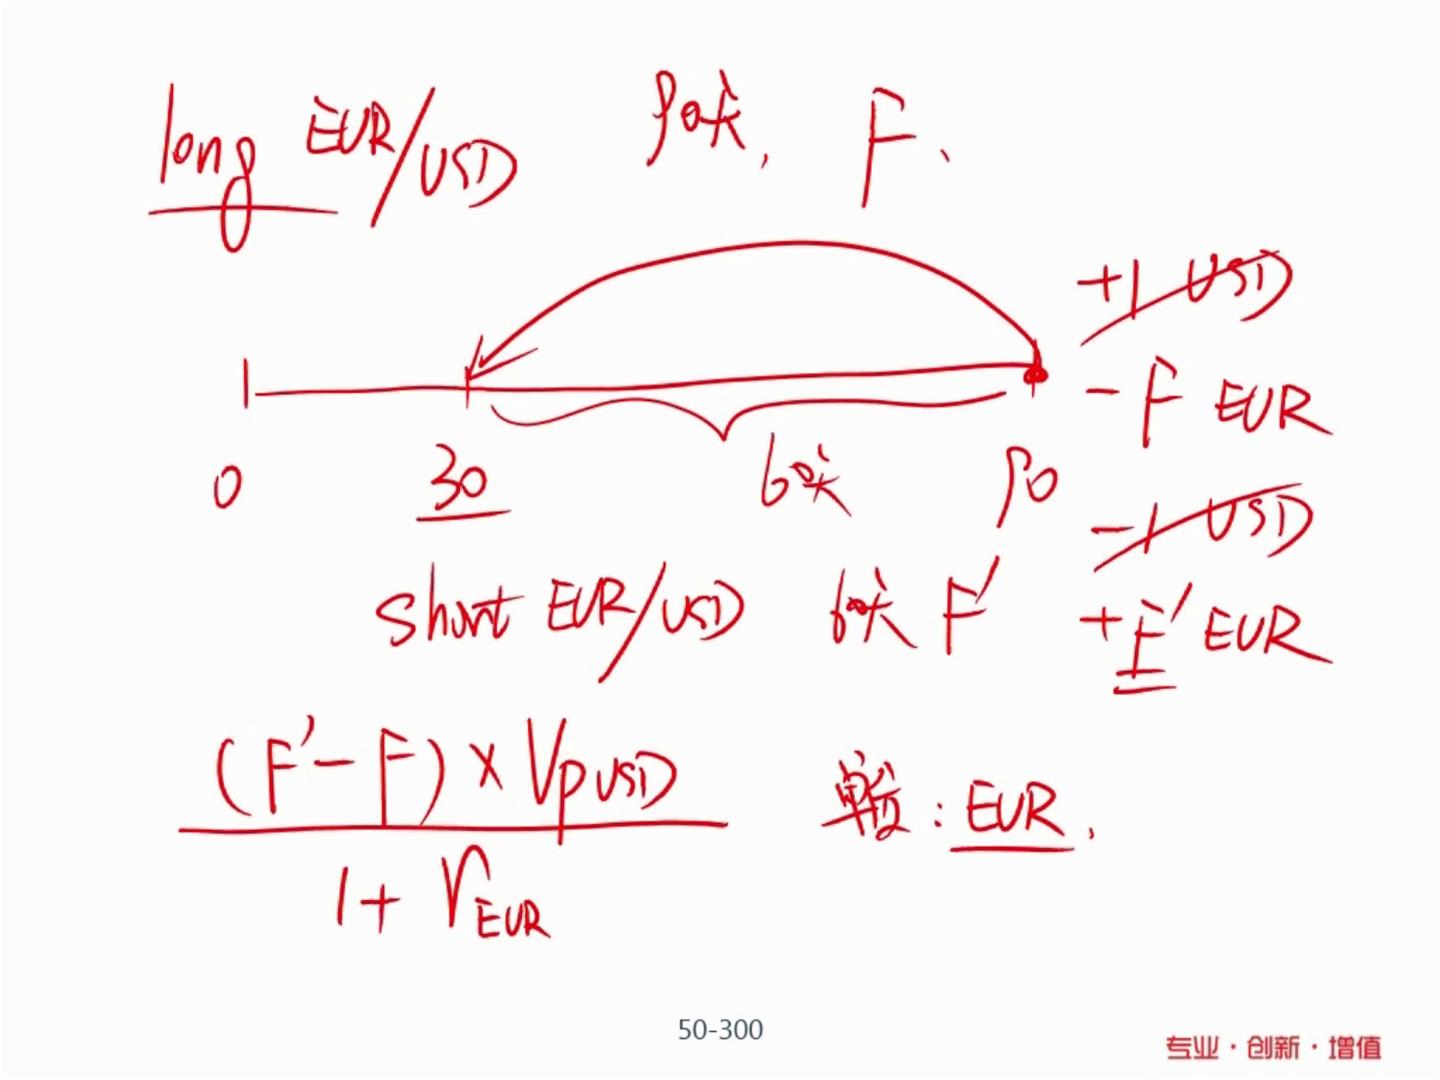 long EUR/USD 90天, F、
+1 USD
- F EUR
0 30 60天 90
-1 USD
short EUR/USD 60天 F' + F' EUR
(F' - F) × VP USD
1 + r EUR
: EUR.
50-300
专业·创新·增值